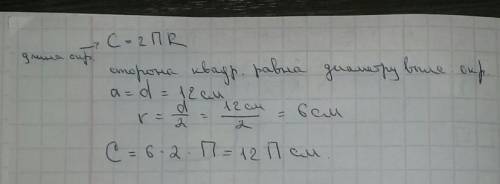 длина окр. → C = 2ПR
сторона квадр. равна диаметру впис окр
a = d = 12 см
r = d/2 = 12 см/2 = 6 см
C = 6 · 2 · П = 12 П см.